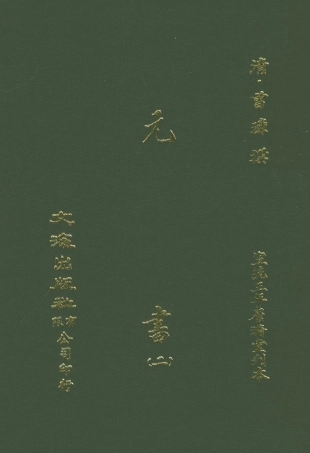 清·曾廉撰
宣統三年層漪堂刊本
元書(二)
文海出版社有限公司印行